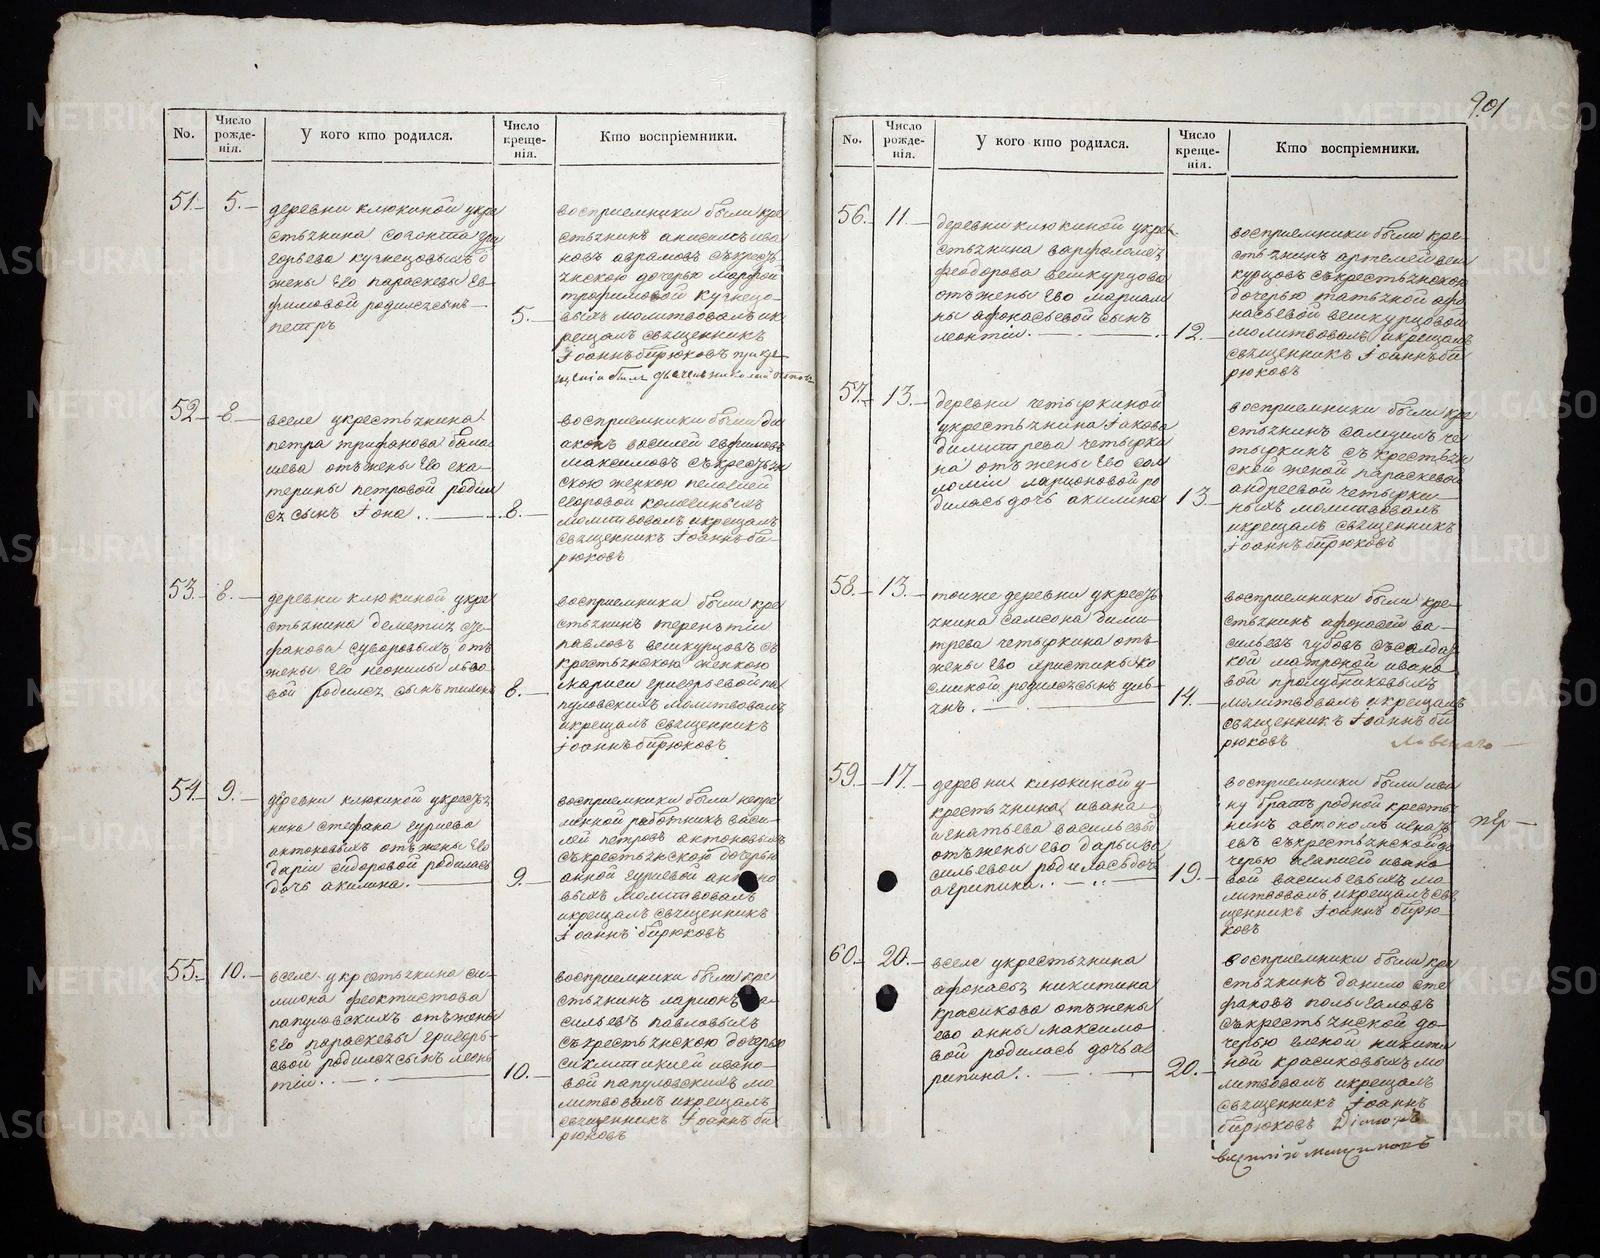 901
No.
Число рожде-нія.
У кого кто родился.
Число креще-нія.
Кто воспріемники.
51. 5.
деревни клюкиной укре
стьянина созонта гри
горьева кузнецовыхъ о
жены его параскевы ев
фимовой родилсясынъ
петръ
5.
восприемники были кре
стьянинъ анисимъ ива
новъ аврамовъ съкресть
янскою дочерью марфой
трофимовой кузнецо
выхъ молитвовалъ ик
рещалъ священникъ
Iоаннъ бирюковъ при кре
щении былъ
52. 8.
вселе укрестьянина
петра трифанова бала
шева отъжены его ека
терины петровой родил
ся сынъ Iона
8.
восприемники были ди
аконъ василей евфимовъ
максимовъ съкрестьян
скою женкою пелагией
егоровой
молитвовалъ икрещалъ
священникъ Iоаннъ би
рюковъ
53. 8.
деревни клюкиной укре
стьянина деметия сте
фанова суворовыхъ отъ
жены его неонилы льво
вой родился сынъ тихонъ
8.
восприемники были кре
стьянинъ терентии
павловъ вешкурцовъ съ
крестьянскою женкою
мариеи григорьевой па
пуловскихъ молитвовалъ
икрещалъ священникъ
Iоаннъ бирюковъ
54. 9.
деревни клюкиной укресть
нина стефана гуриева
антоновыхъ отъжены его
дарiи сидоровой родилась
дочь акилина.
9.
восприемники были непре
менной работникъ васи
лей петровъ антоновыхъ
съкрестьянской дочерью
анной гуриевой антоно
выхъ молитвовалъ
икрещалъ священникъ
Iоаннъ бирюковъ
55. 10.
вселе укрестьянина си
миона феоктистова
папуловскихъ отъжены
его параскевы григорь
евой родилсясынъ леон
тiи
10.
восприемники были кре
стьянинъ ларионъ ва
сильевъ павловыхъ
съкрестьянскою дочерью
ивано
вой папуловскихъ мо
литвовалъ икрещалъ
священникъ Iоаннъ би
рюковъ
No.
Число рожде-нія.
У кого кто родился.
Число креще-нія.
Кто воспріемники.
56. 11.
деревни клюкиной укре
стьянина варфоломея
феодорова вешкурцова
отъжены его мариам
ны афонасьевой сынъ
леонтiи
12.
восприемники были кре
стьянинъ артемей веш
курцовъ съкрестьянскою
дочерью татьяной афо
насьевой вешкурцовой
молитвовалъ икрещалъ
священникъ Iоаннъ би
рюковъ
57. 13.
деревни четыркиной
укрестьянина Iакова
димитрева четырки
на отъжены его сол
ломии ларионовой ро
дилась дочь акилина
13
восприемники были кре
стьянинъ самуилъ че
тыркинъ съ крестьян
ской женой параскевой
андреевой четырки
ныхъ молитвовалъ
икрещалъ священникъ
Iоаннъ бирюковъ
58. 13.
тоиже деревни укресть
янина самсона дими
трева четыркина отъ
жены его христины ко
сминой родилсясынъ уль
янъ.
14.
восприемники были кре
стьянинъ афонасей ва
сильевъ губовъ съсолдат
кой матроной ивано
вой пролубниковыхъ
молитвовалъ икрещалъ
священникъ Iоаннъ би
рюковъ
59. 17.
деревни клюкиной у
крестьянина ивана
игнатьева васильевы
отъжены его дарьи ва
сильевои родиласьдочь
агрипина
19.
восприемники были ива
ну братъ родной кресть
нинъ автономъ игнать
евъ съкрестьянской до
черью ивано
вой васильевыхъ мо
литвовалъ икрещалъ свя
щенникъ Iоаннъ бирю
ковъ
60. 20.
вселе укрестьянина
афонасья никитина
красикова отъжены
его анны максимо
вой родилась дочь аг
рипина.
20.
восприемники были кре
стьянинъ данило сте
фановъ
съкрестьянской до
черью еленой никити
ной красиковыхъ мо
литвовалъ икрещалъ
священникъ Iоаннъ
бирюковъ Дiаконъ
василiй максимовъ